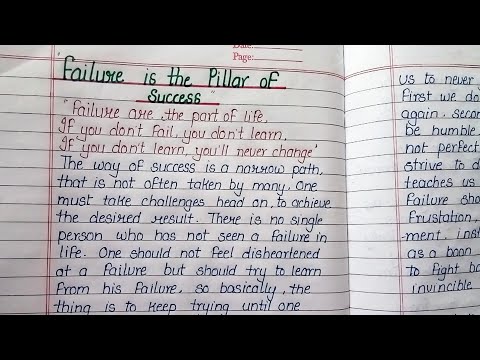 Date:
Page:
"Failure is the Pillar of
Success"
"Failure are the part of life,
If you don't fail, you don't learn,
If you don't learn, you'll never change"
The way of success is a narrow path,
that is not often taken by many. One
must take challenges head on, to achieve
the desired result. There is no single
person who has not seen a failure in
life. One should not feel disheartened
at a failure but should try to learn
from his failure, so basically, the
thing is to keep trying until one
us to never
first we do
again, secon
be humble,
not perfect
strive to d
teaches us
Failure sho
Frustation,
-ment. inst
as a boon
to fight ba
invincible